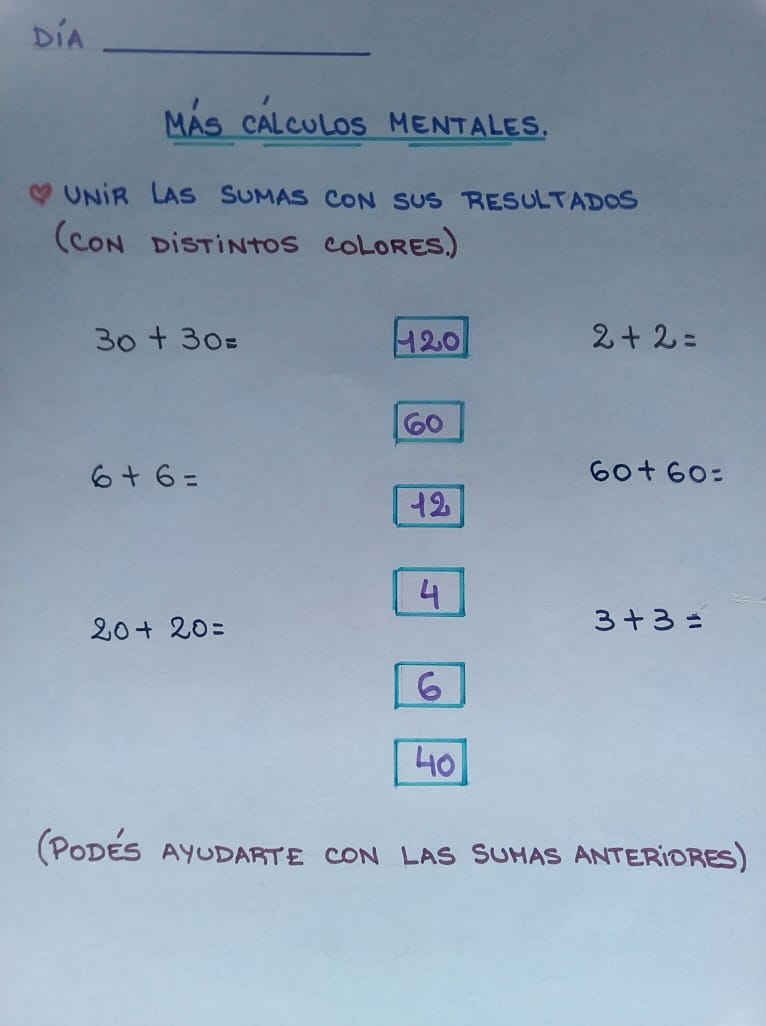 DÍA
MÁS CÁLCULOS MENTALES.
UNIR LAS SUMAS CON SUS RESULTADOS
(CON DISTINTOS COLORES.)
30 + 30= 120 2 + 2 =
60
6 + 6 = 60 + 60=
12
4
20 + 20= 3 + 3 =
6
40
(PODÉS AYUDARTE CON LAS SUMAS ANTERIORES)